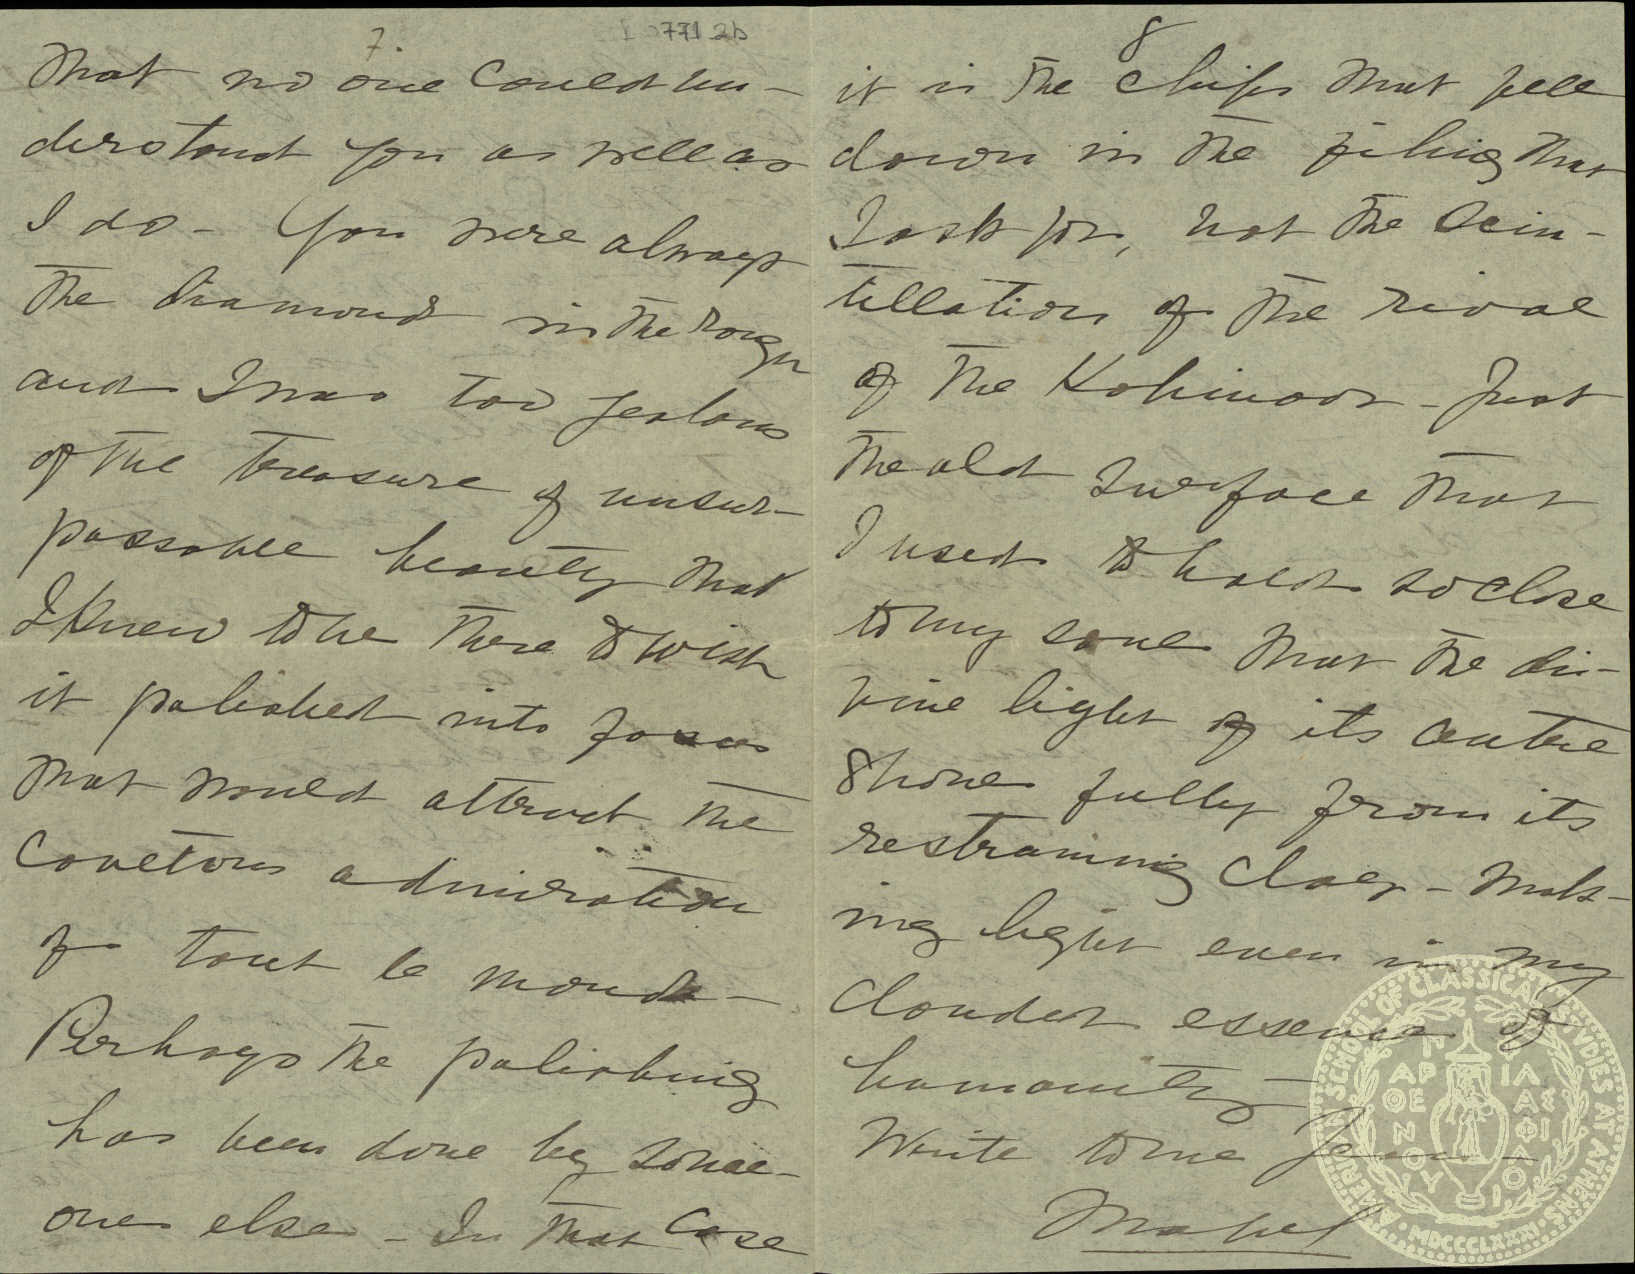 7.
771 2b
that no one could un-
derstand you as well as
I do - You were always
the diamond in the rough
and I was too jealous
of the treasure of unsur-
passable beauty that
I knew to be there to wish
it polished into
that would attract the
covetous admiration
of tout le monde -
Perhaps the polishing
has been done by some-
one else - In that case
8
it is the chips that fell
down in the filing that
I ask for, not the scin-
tillation of the rival
of the Kohinoor - Just
the old surface that
I used to hold so close
to my soul that the di-
vine light of its centre
shone fully from its
restraining clay - mak-
ing light even in my
clouded essence of
humanity -
Write to me
Mabel
AMERICAN SCHOOL OF CLASSICAL STUDIES AT ATHENS
MDCCCLXXXI